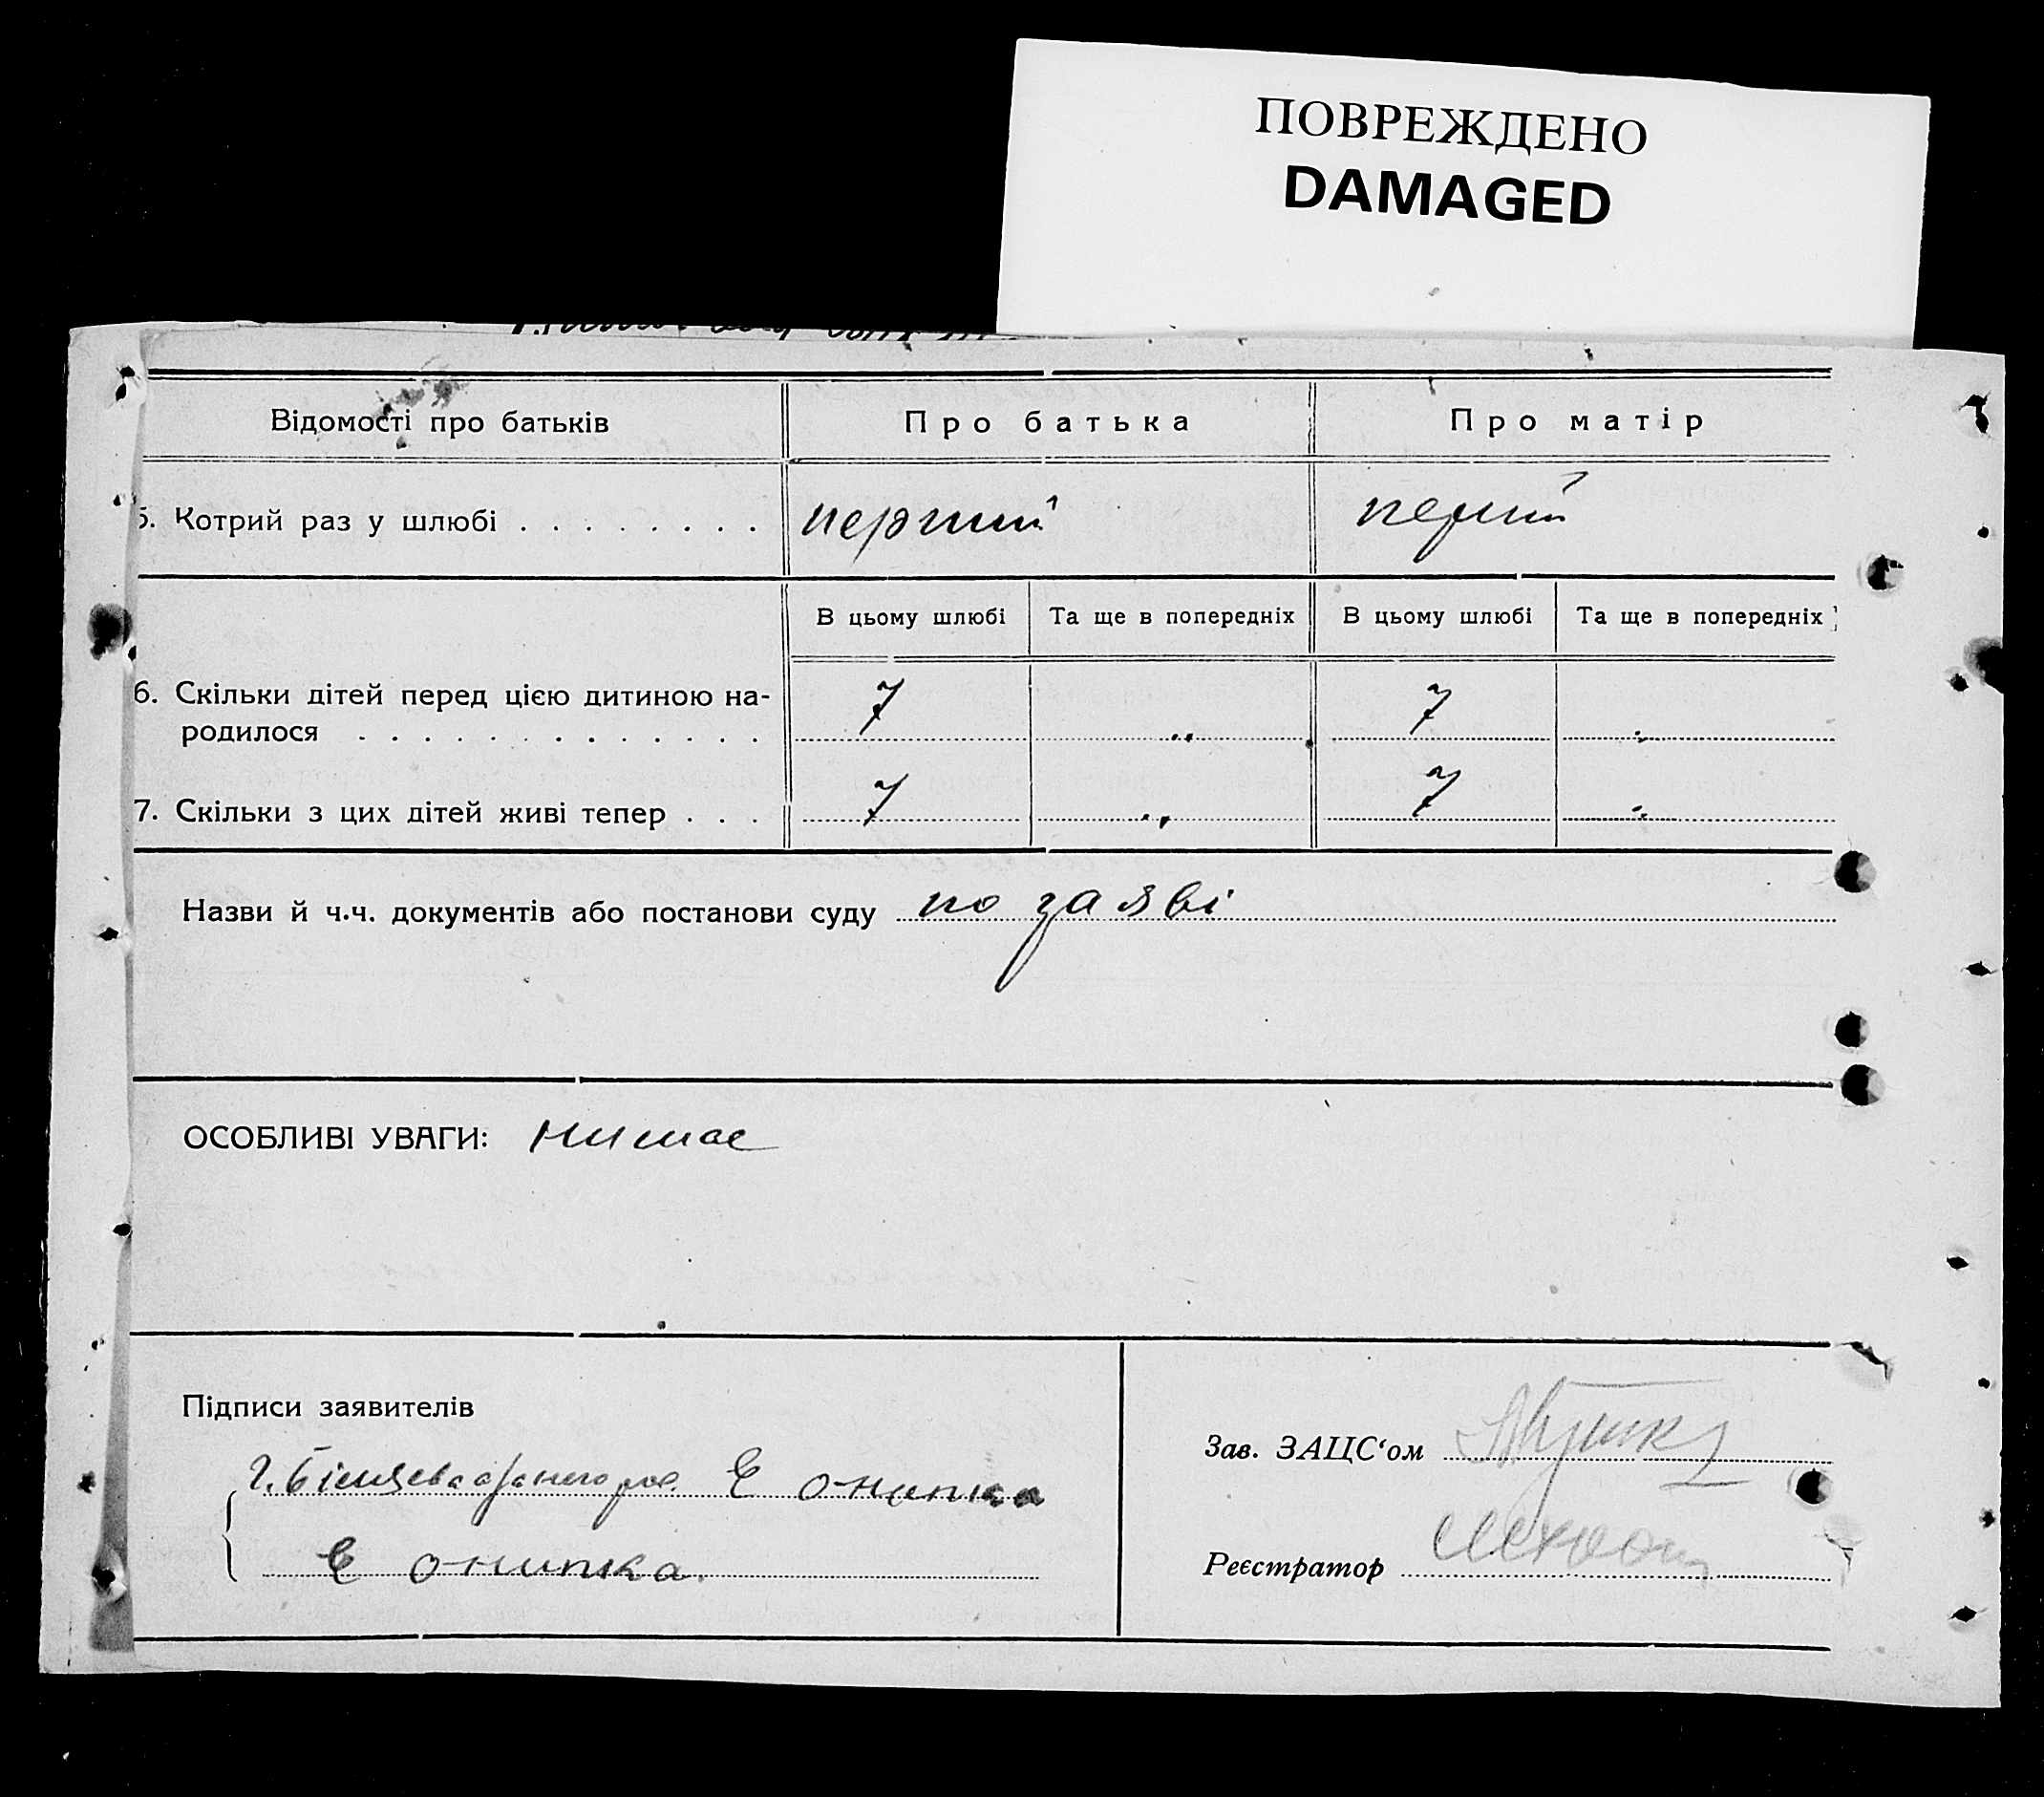 ПОВРЕЖДЕНО
DAMAGED
Відомості про батьків Про батька Про матір
5. Котрий раз у шлюбі перший перший
В цьому шлюбі Та ще в попередніх В цьому шлюбі Та ще в попередніх
6. Скільки дітей перед цією дитиною на-
родилося 7 „ 7 „
7. Скільки з цих дітей живі тепер 7 „ 7 „
Назви й ч.ч. документів або постанови суду по заяві
ОСОБЛИВІ УВАГИ: нимає
Підписи заявителів
Е онипка
Е онипка.
Зав. ЗАЦС‘ом
Реєстратор